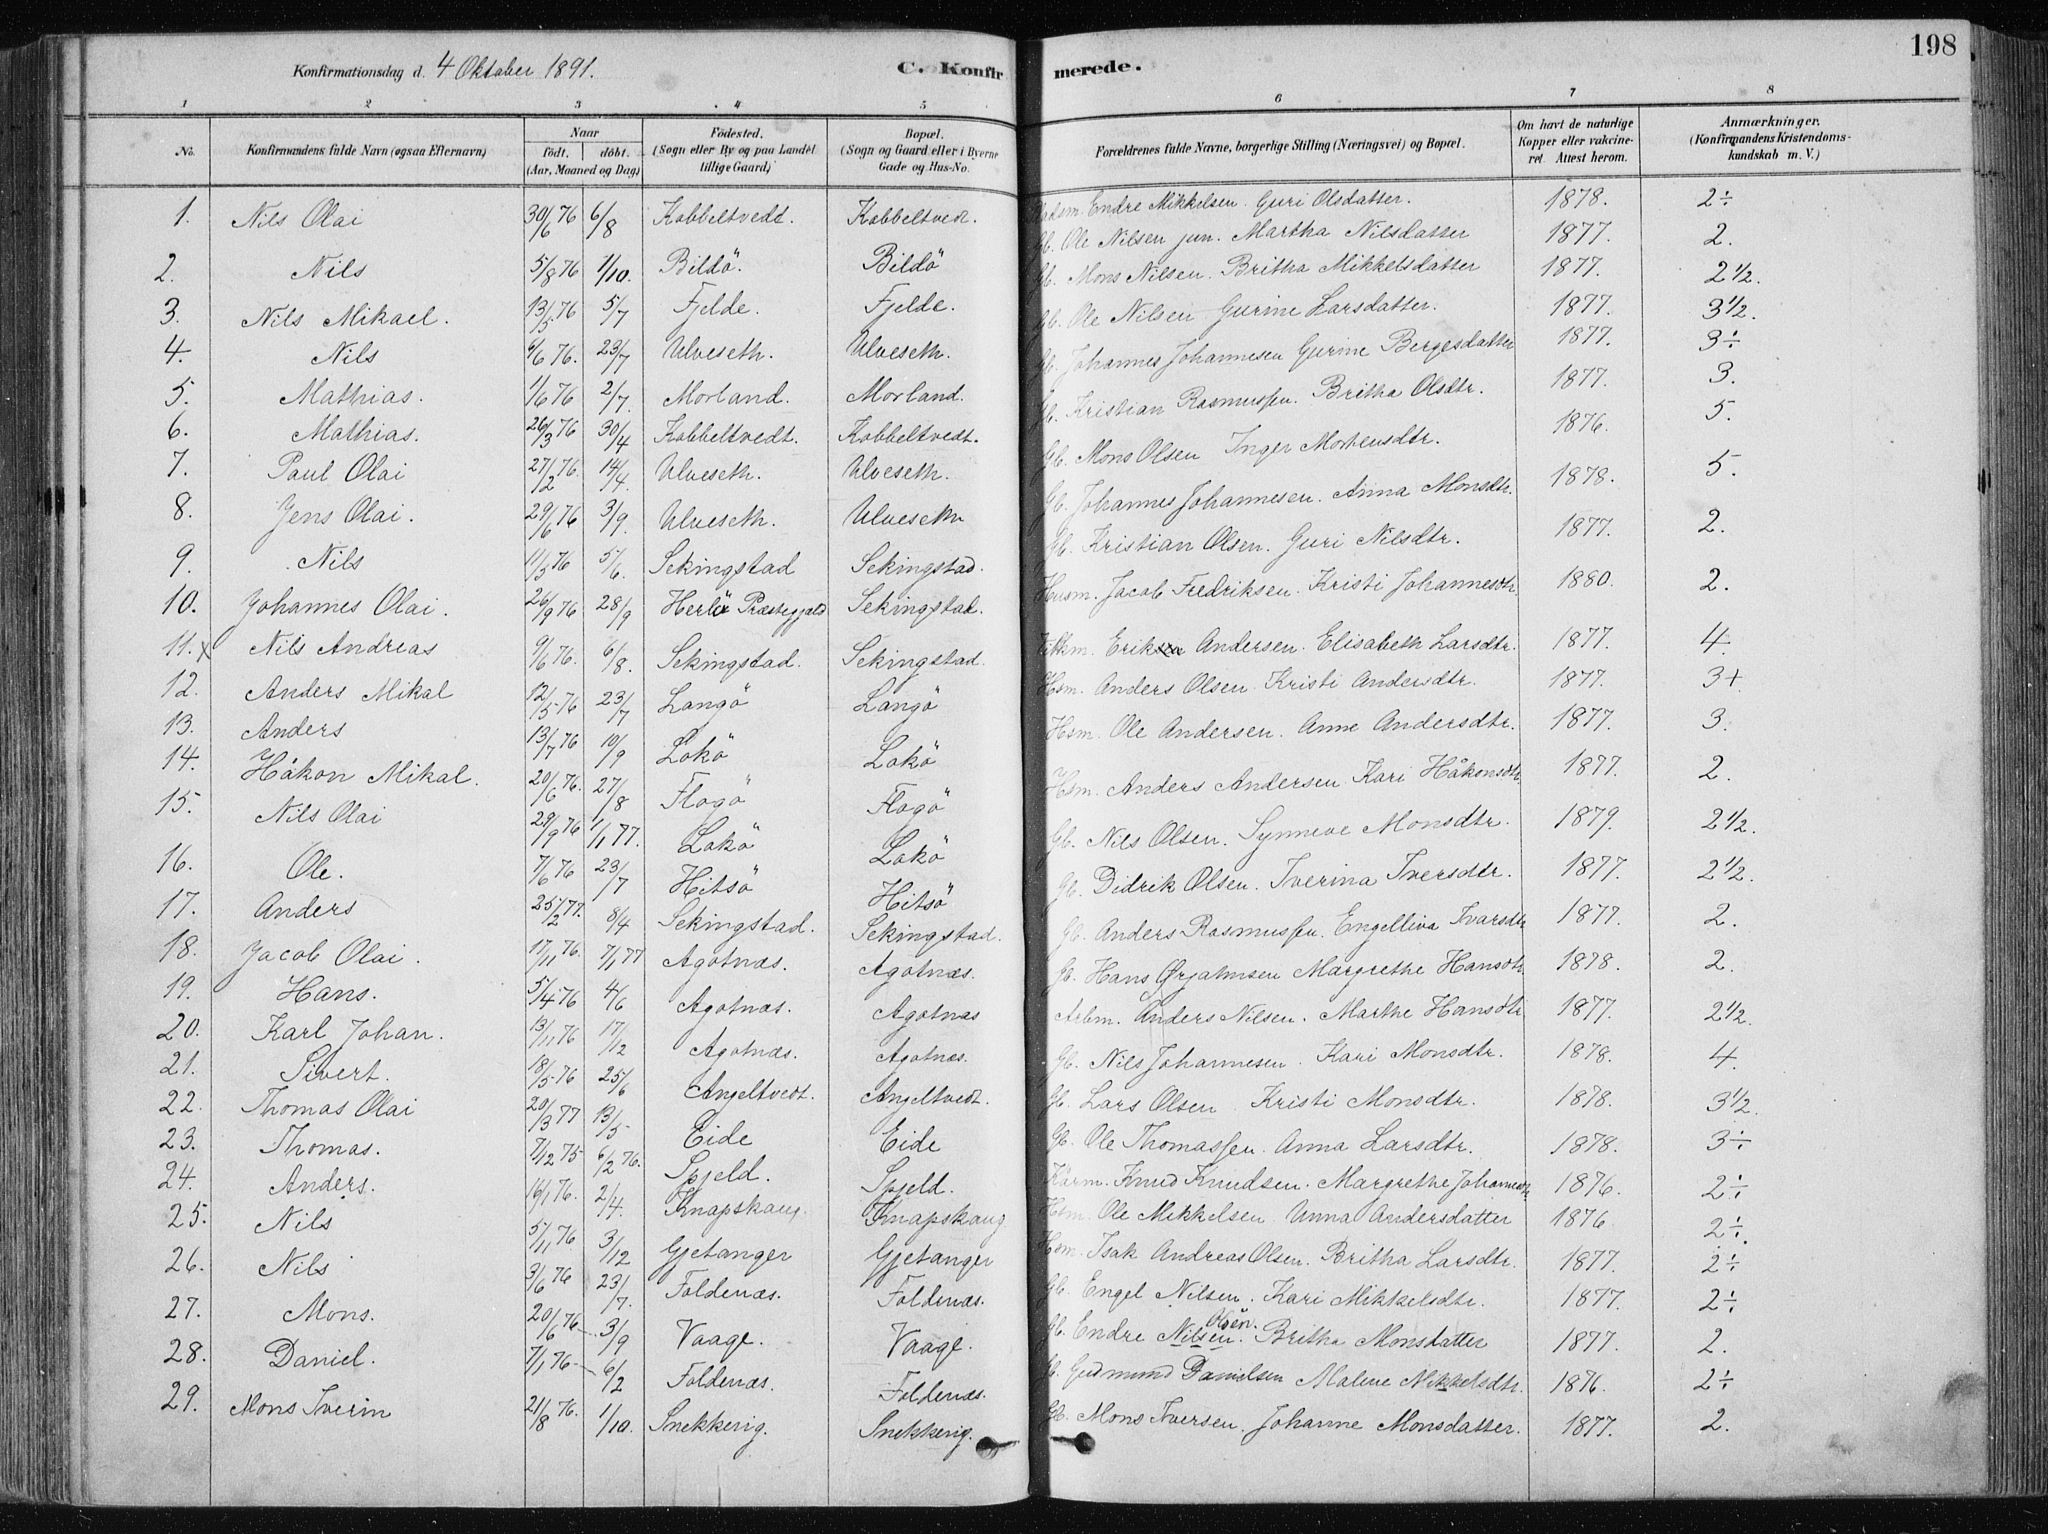 198
Konfirmationsdag d. 4 Oktober 1891.
C. Konfirmerede.
1 2 3 4 5 6 7 8
No. Konfirmandens fulde Navn (ogsaa Efternavn) Naar født. døbt. (Aar, Maaned og Dag) Fødested. (Sogn eller By og paa Landet tillige Gaard) Bopæl. (Sogn og Gaard eller i Byerne Gade og Hus-No. Forældrenes fulde Navne, borgerlige Stilling (Næringsvei) og Bopæl. Om havt de naturlige Kopper eller vakcineret. Attest herom. Anmærkninger. (Konfirmandens Kristendomskundskab m. V.)
1. Nils Olai 30/6 76 6/8 Kobbeltvedt. Kobbeltvedt. Endre Mikkelsen. Guri Olsdatter. 1878. 2÷
2. Nils 5/8 76 1/10. Bildö. Bildö Gb. Ole Nilsen jun. Martha Nilsdatter 1877. 2.
3. Nils Mikael. 13/5 76 5/7 Fjelde. Fjelde. Gb. Mons Nilsen. Britha Mikkelsdatter 1877. 2½.
4. Nils 9/6 76. 23/7 Ulveseth. Ulveseth. Gb. Ole Nilsen Gurine Larsdatter. 1877. 3½.
5. Mathias. 1/6 76 2/7 Morland. Morland. Gb. Johannes Johannesen Gurine Bergesdatter 1877. 3÷
6. Mathias. 26/3 76 30/4 Kobbeltvedt. Kobbeltvedt. Gb. Kristian Rasmussen. Britha Olsdtr. 1877. 3.
7. Paul Olai 27/2 76. 14/4. Ulveseth. Ulveseth. Gb. Mons Olsen Inger Mortensdtr. 1876. 5.
8. Jens Olai. 29/6 76 3/9. Ulveseth. Ulveseth Gb. Johannes Johannesen. Anna Monsdtr. 1878. 5.
9. Nils 11/5 76 5/6. Sekingstad Sekingstad. Gb. Kristian Olsen. Guri Nilsdtr. 1877. 2.
10. Johannes Olai. 26/9 76 28/9 Herlö Præstegjeld Sekingstad. Husm. Jacob Fredriksen. Kristi Johannesdtr 1880. 2.
11. x Nils Andreas 9/6 76. 6/8. Sekingstad. Sekingstad. Erik Andersen. Elisabeth Larsdtr. 1877. 4.
12. Anders Mikal 12/5 76 23/7 Langö Langö Hsm. Anders Olsen. Kristi Andersdtr. 1877. 3+
13. Anders 13/7 76 10/9 Lokö Lokö Hsm. Ole Andersen. Anne Andersdtr. 1877. 3.
14. Håkon Mikal. 20/6 76. 27/8 Flogö Flogö Hsm. Anders Andersen. Kari Håkonsdtr. 1877. 2.
15. Nils Olai 29/9 76 1/1 77. Lokö Lokö Gb. Nils Olsen. Synneve Monsdtr. 1879. 2½.
16. Ole. 7/6 76 23/7 Hitsö Hitsö Gb. Didrik Olsen. Iverina Iversdtr. 1877. 2½.
17. Anders 25/2 77. 8/4 Sekingstad. Sekingstad. Gb. Anders Rasmussen. Engelliva Ivarsdtr 1877. 2.
18. Jacob Olai. 17/11 76. 7/1 77 Agotnæs. Agotnæs. Gb. Hans Ørjahnsen Margrethe Hansdtr 1878. 2.
19. Hans. 5/4 76 4/6 Agotnæs. Agotnæs Arbm. Anders Nilsen. Marthe Hansdtr 1877. 2½.
20. Karl Johan. 13/11 76 17/12 Agotnæs. Agotnæs. Gb. Nils Johannesen. Kari Monsdtr. 1878. 4
21. Sivert. 18/5 76 25/6 Angeltvedt. Angeltvedt. Gb. Lars Olsen Kristi Monsdtr. 1878. 3½.
22. Thomas Olai 20/3 77 13/5 Eide Eide Gb. Ole Thomassen. Anna Larsdtr. 1878. 3÷
23. Thomas. 7/12 75 6/2 76. Spjeld. Spjeld. Kårm. Knud Knudsen. Margrethe Johannesdtr 1876. 2÷.
24. Anders. 16/1 76. 2/4. Knapskaug. Knapskaug Hsm. Ole Mikkelsen. Anna Andersdatter 1876. 2÷.
25. Nils 5/11 76 3/12 Gjetanger Gjetanger Hsm. Isak Andreas Olsen. Britha Larsdtr. 1877. 2÷
26. Nils 3/6 76 23/7. Foldenæs. Foldenæs. Gb. Engel Nilsen. Kari Mikkelsdtr. 1877. 2÷.
27. Mons. 20/6 76 3/9 Vaage. Vaage. Gb. Endre Nilsen. Olsen. Britha Monsdatter 1877. 2.
28. Daniel. 7/1 76 6/2 Foldenæs. Foldenæs. Gb. Gudmund Danielsen Malene Mikkelsdtr. 1876. 2÷
29. Mons Iverin 21/8 76. 1/10. Snekkerig. Snekkerig. Gb. Mons Iversen. Johanne Monsdatter. 1877. 2.